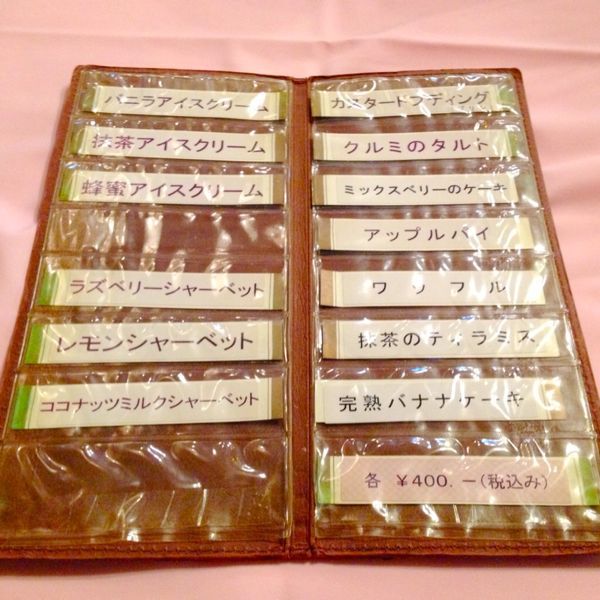 バニラアイスクリーム
抹茶アイスクリーム
蜂蜜アイスクリーム
ラズベリーシャーベット
レモンシャーベット
ココナッツミルクシャーベット
カスタードプディング
クルミのタルト
ミックスベリーのケーキ
アップルパイ
ワッフル
抹茶のティラミス
完熟バナナケーキ
各 ¥400.－(税込み)